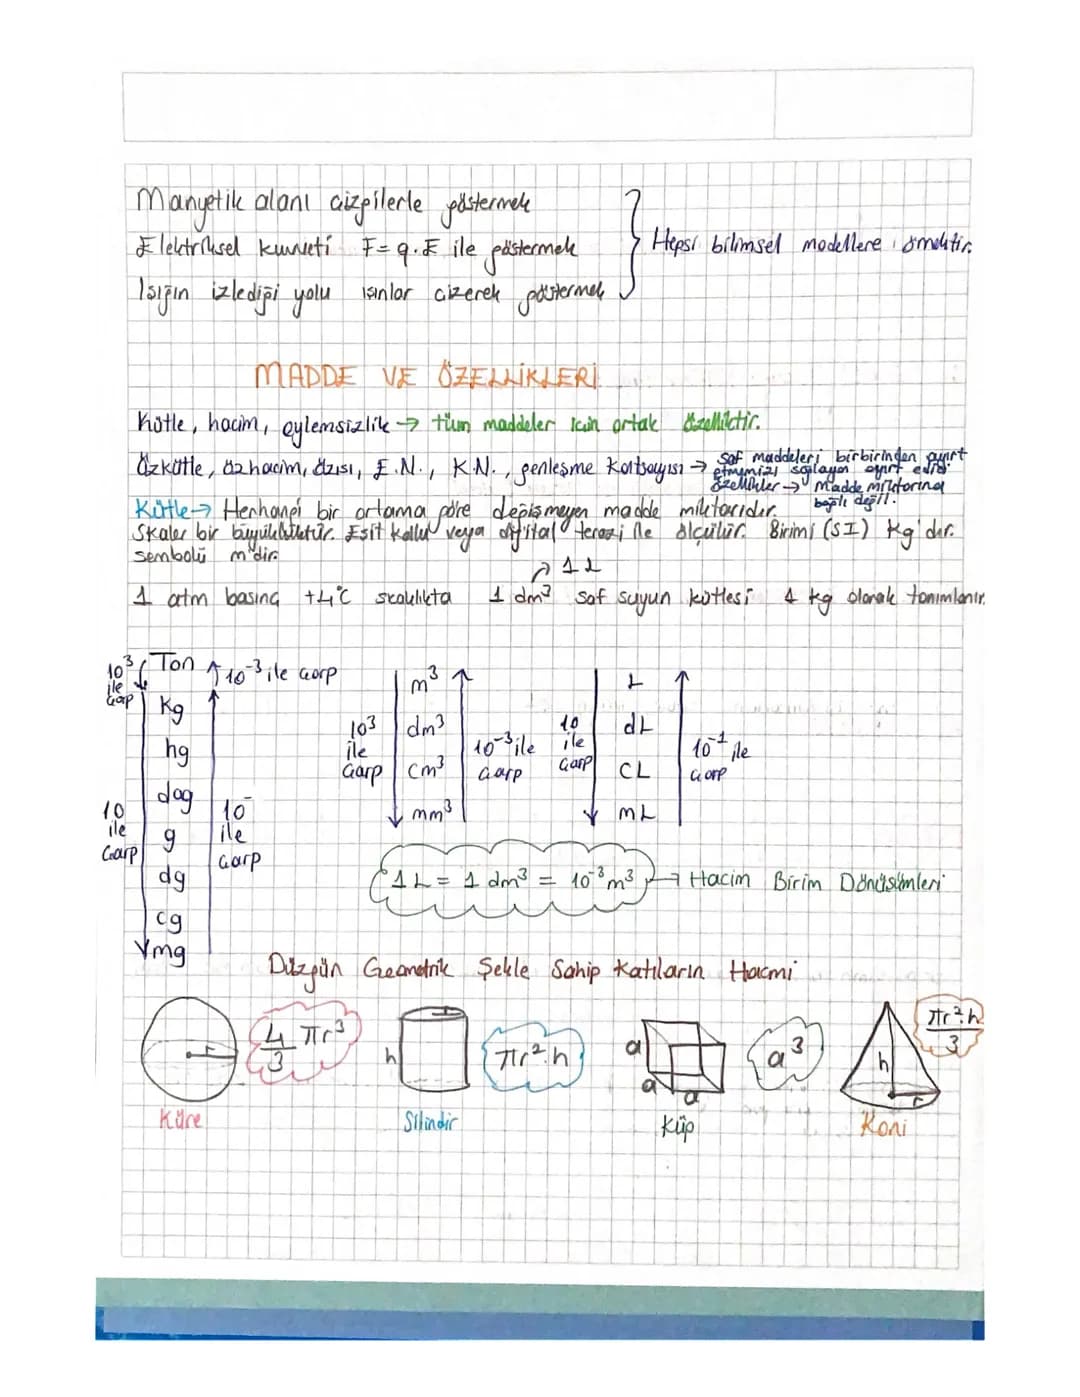 Manyetik alanı çizgilerle göstermek
Elektriksel kuvveti F = q.E ile göstermek
Işığın izlediği yolu ışınlar çizerek göstermek
Hepsi bilimsel modellere örnektir.
MADDE VE ÖZELLİKLERİ
Kütle, hacim, eylemsizlik → tüm maddeler için ortak özelliktir.
Özkütle, özhacim, özısı, E.N., K.N., genleşme katsayısı → saf maddeleri birbirinden ayırt
etmemizi sağlayan ayırt edici
özellikler → Madde miktarına
bağlı değil.
Kütle → Herhangi bir ortama göre değişmeyen madde miktarıdır.
Skaler bir büyüklüktür. Eşit kollu veya dijital terazi ile ölçülür. Birimi (SI) kg'dır.
sembolü m'dir.
1 L
1 atm basınç +4°C sıcaklıkta 1 dm³ saf suyun kütlesi 1 kg olarak tanımlanır.
10³ ile çarp
Ton
10⁻³ ile çarp
kg
hg
dag
g
dg
cg
mg
10 ile çarp
10⁻ ile çarp
10³ ile çarp
m³
dm³
cm³
mm³
10⁻³ ile çarp
10 ile çarp
L
dL
CL
mL
10⁻¹ ile çarp
1 L = 1 dm³ = 10⁻³ m³ → Hacim Birim Dönüşümleri
Düzgün Geometrik Şekle Sahip Katıların Hacmi
r
4/3 πr³
h
πr².h
a
a
a
a³
h
r
πr².h/3
Küre
Silindir
Küp
Koni